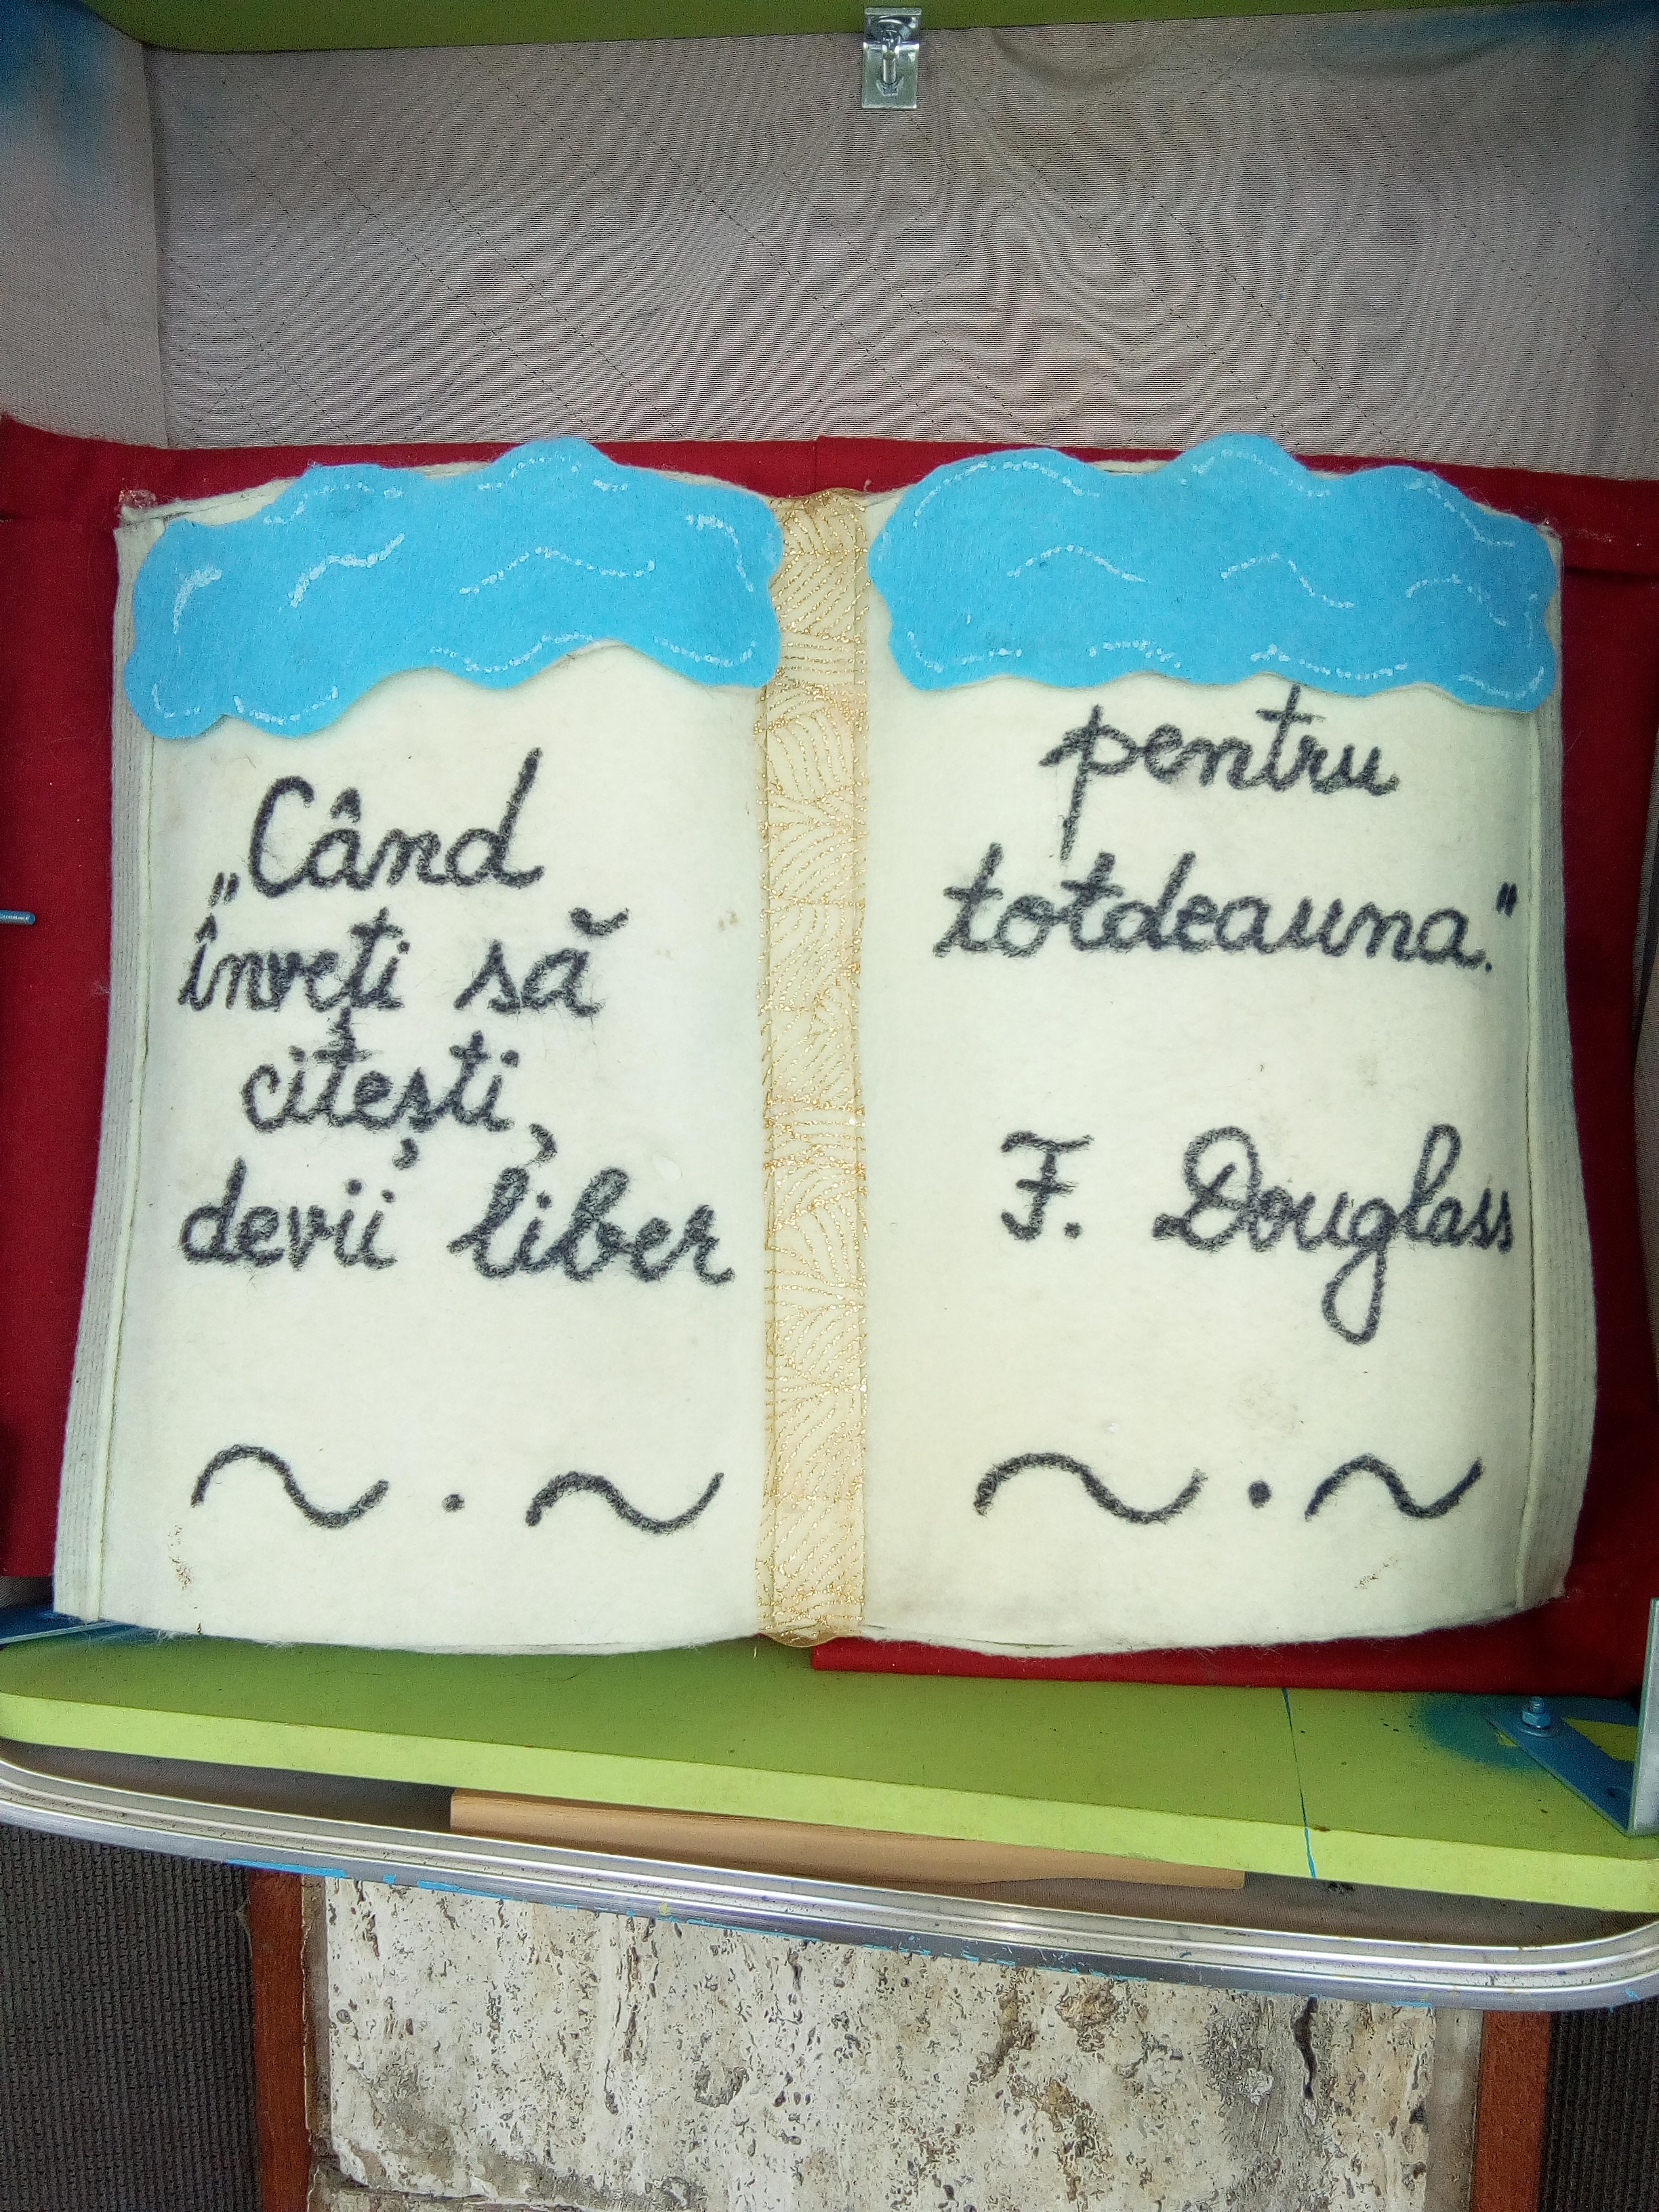 „Când
înveți să
citești,
devii liber
~ . ~
pentru
totdeauna."
F. Douglass
~ . ~